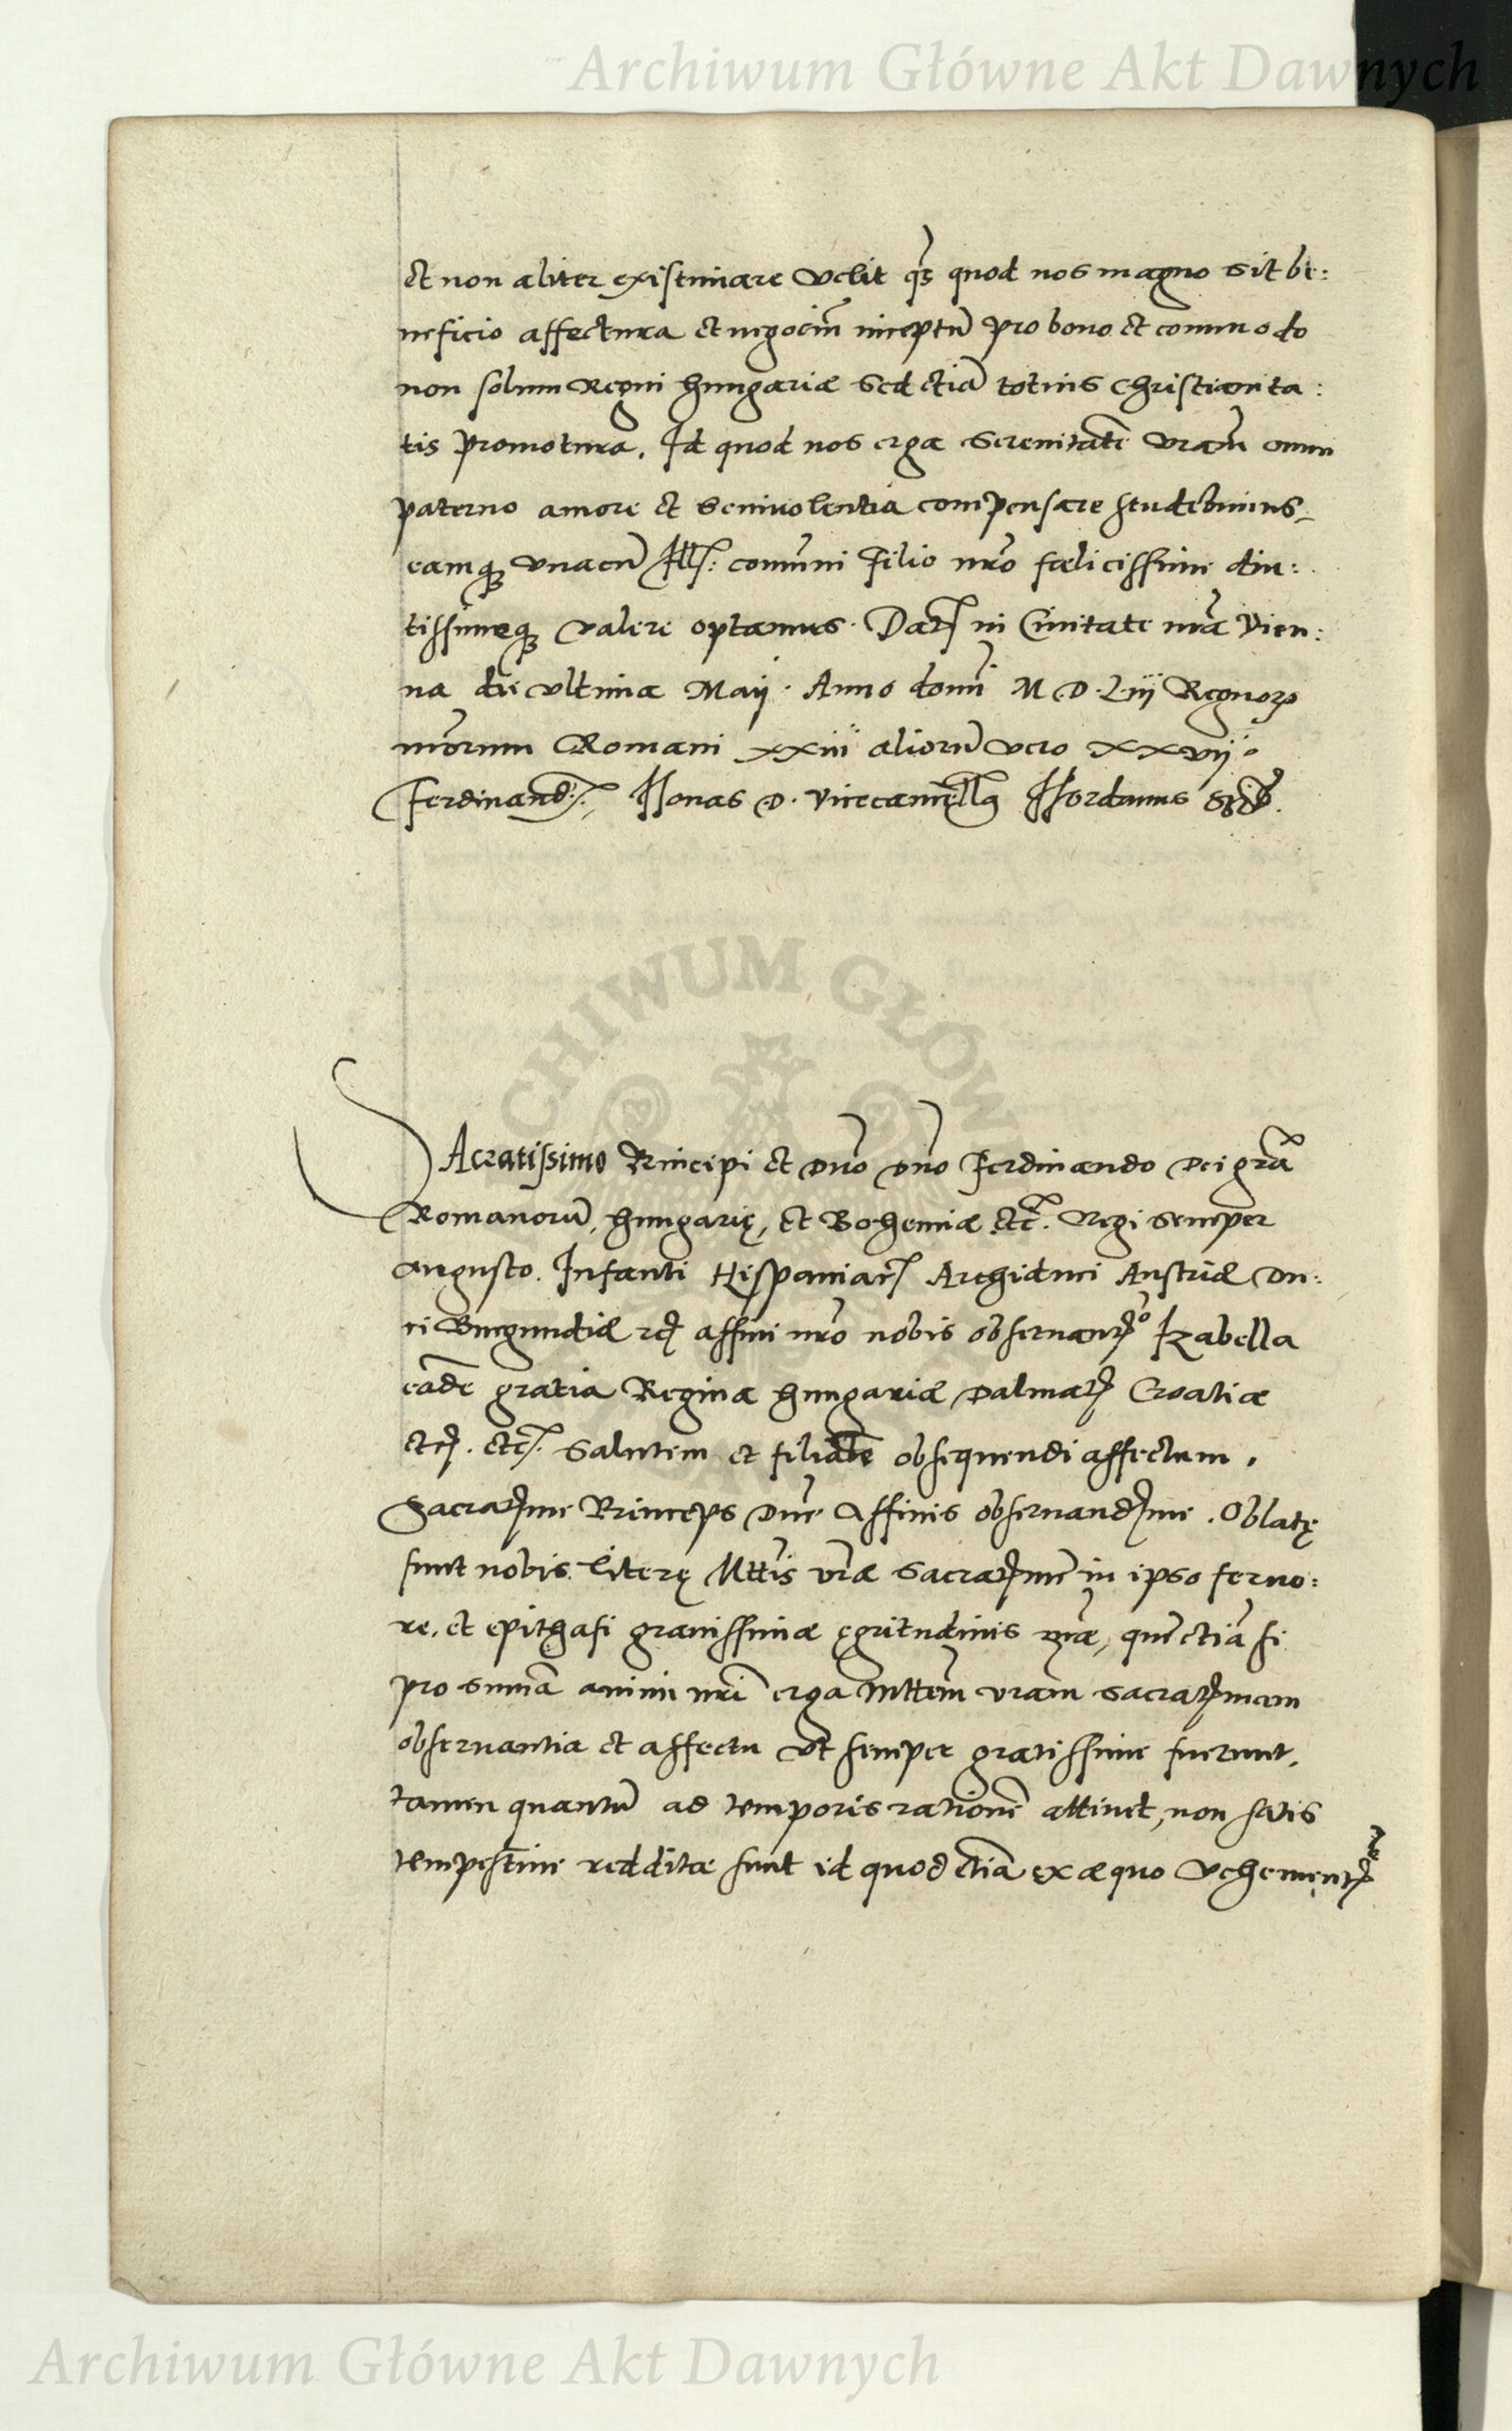 Archiwum Główne Akt Dawnych
et non aliter existimare velit qȝ quod nos magno sit be:
neficio affectura et negociũ inceptũ pro bono et commodo
non solum Regni hungariæ sed etiã totius christianita:
tis promotura. Id quod nos erga Serenitatẽ vram̃ omni
paterno amore et benivolentia compensare studebimus,
eamqȝ vnacũ Ill: comuñi Filio nr̃o fœlicissime diu:
tissimeqȝ valere optamus. Dat in Civitate nr̃a Vien:
na die vltima Maij. Anno domĩ M.D.L.iij Regnorꝝ
nr̃orum Romani xxiij aliorũ vero xxvij.
Ferdinand: Jonas D. Vicecancella
CHIWUM GŁÓW
SAcratissimo Principi et Dño Dño Ferdinando Dei grã
Romanorũ, hungarię, et Bohemiæ etc. Regi semper
Augusto. Infanti Hispaniar Archiduci Austriæ Du:
ci Burgundiæ etc affini nr̃o nobis obseruanđo Izabella
eãdẽ gratia Regina hungariæ Dalmat Croatiæ
etc. etc. Salutem et filialẽ obsequendi affectum.
Sacrat̃me Princeps Dñe Affinis obseruand̃me. Oblatę
sunt nobis literę Mttis̃ vr̃æ Sacrat̃me in ipso feruo:
re, et epithasi grauissimæ ęgritudinis nr̃æ, quẽ etiã si
pro sum̃a animi nr̃i erga Mttem̃ vram̃ sacrat̃mam
obseruantia et affectu vt semper gratissime fuerunt,
tamen quantũ ad temporis rationẽ attinet, non satis
tempestiue redditæ sunt id quod etiã ex æquo vehement
Archiwum Główne Akt Dawnych